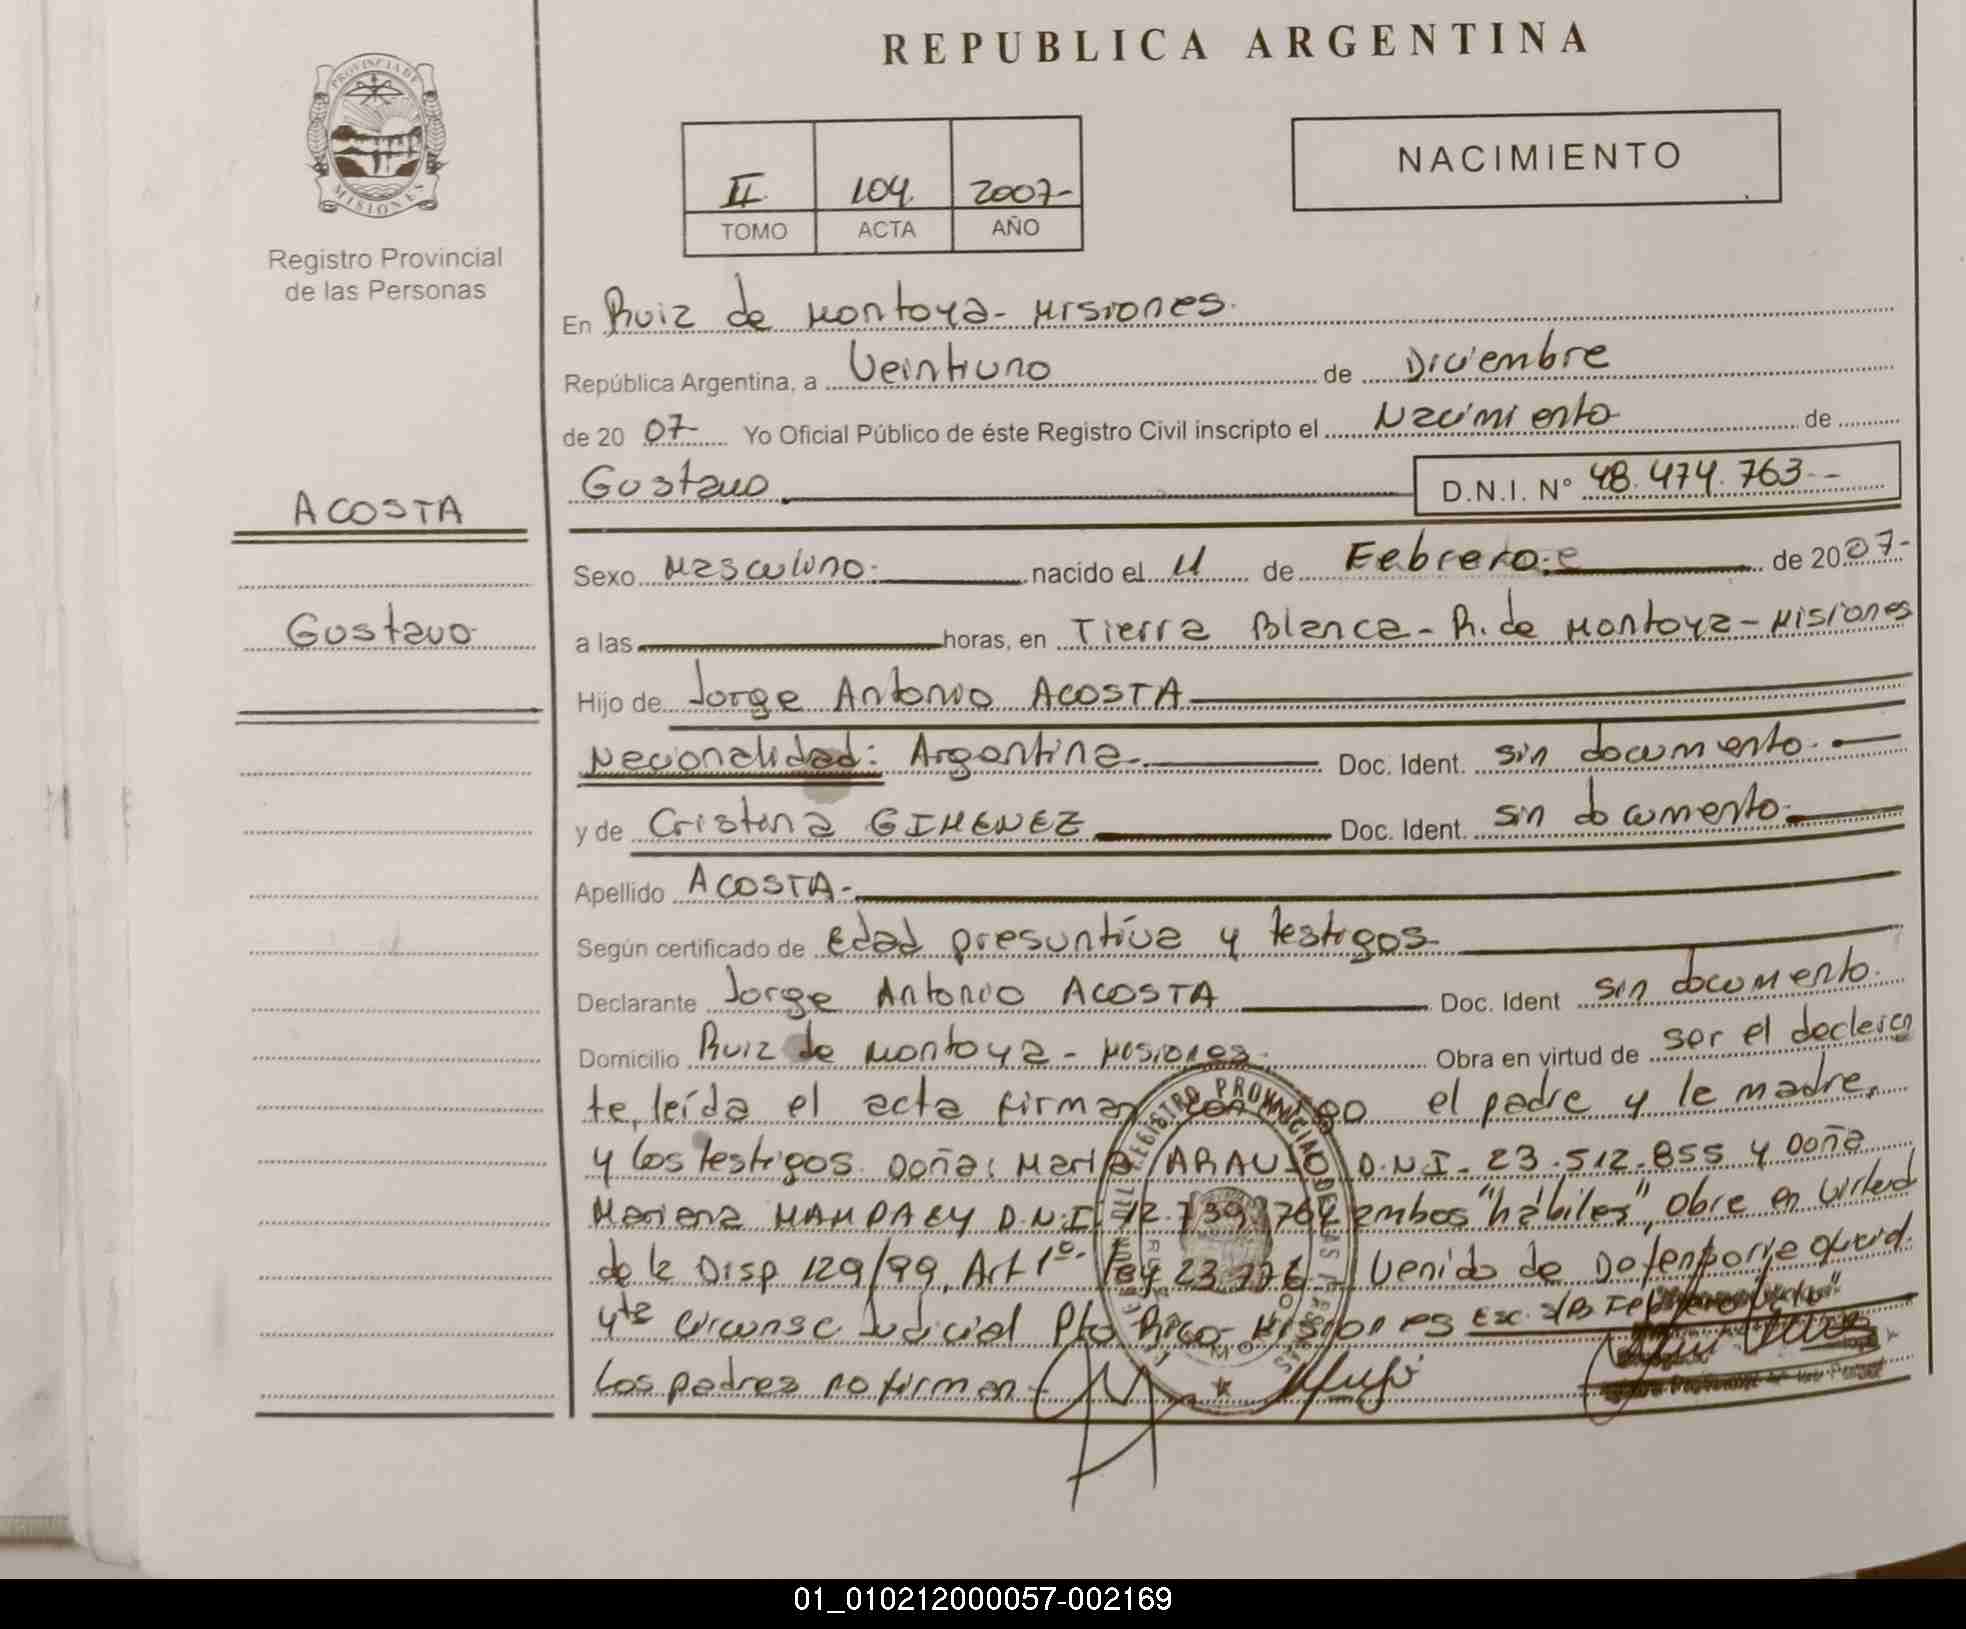 REPUBLICA ARGENTINA
PROVINCIA DE
MISIONES
Registro Provincial
de las Personas
NACIMIENTO
II 104 2007-
TOMO ACTA AÑO
En Ruiz de Montoya - Misiones.
República Argentina, a Veintiuno de Diciembre
de 20 07- Yo Oficial Público de éste Registro Civil inscripto el Nacimiento de
Gustavo D.N.I. N° 48.474.763--
ACOSTA
Gustavo
Sexo Masculino. nacido el 11 de Febrero.e de 2007-
a las horas, en Tierra Blanca - R. de Montoya - Misiones
Hijo de Jorge Antonio ACOSTA
Nacionalidad: Argentina. Doc. Ident. sin documento.
y de Cristina GIMENEZ Doc. Ident. sin documento.
Apellido ACOSTA-
Según certificado de edad presuntiva y testigos
Declarante Jorge Antonio ACOSTA Doc. Ident sin documento.
Domicilio Ruiz de Montoya - Misiones. Obra en virtud de ser el declaran
te, leída el acta firman conmigo el padre y la madre,
y los testigos Doña: Maria ARAUJO D.N.I- 23.512.855 y Doña
Mariana D.N.I. ambos "hábiles", obra en virtud
de la Disp 129/99, Art 1º- Ley 23.776 Venido de
4ta Circunsc Judicial Pto Rico - Misiones Esc. s/b Febrero
Los padres no firman-
REGISTRO PROVINCIAL DE LAS PERSONAS
01_010212000057-002169